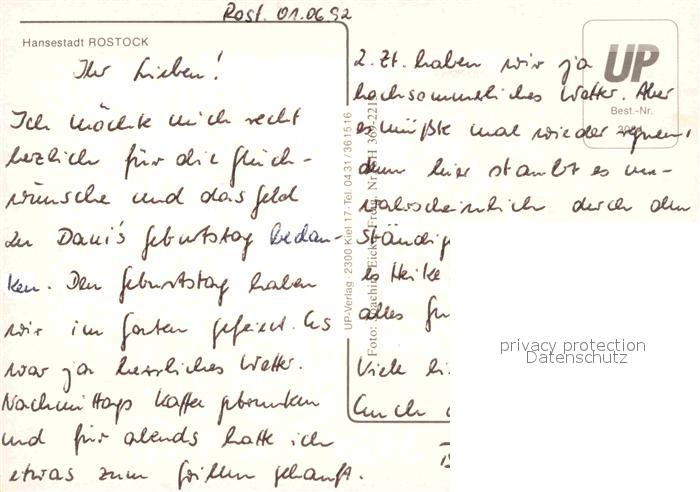 Rost. 01.06.92
Hansestadt ROSTOCK
Ihr Lieben!
Ich möchte mich recht
herzlich für die Glück-
wünsche und das Geld
zu Dani's Geburtstag bedan-
ken. Den Geburtstag haben
wir im Garten gefeiert. Es
war ja herrliches Wetter.
Nachmittags Kaffee getrunken
und für abends hatte ich
etwas zum Grillen gekauft.
z. Zt. haben wir ja
hochsommerliches Wetter. Aber
es müßte mal wieder regnen,
denn hier staubt es un-
wahrscheinlich durch den
ständig
es Heike
alles Gu
Viele li
Euch
UP
Best.-Nr.
UP-Verlag · 2300 Kiel 17 · Tel. 0431/361516
Foto: Joachim Eicke, Freig. Nr. SH 369-221
privacy protection
Datenschutz